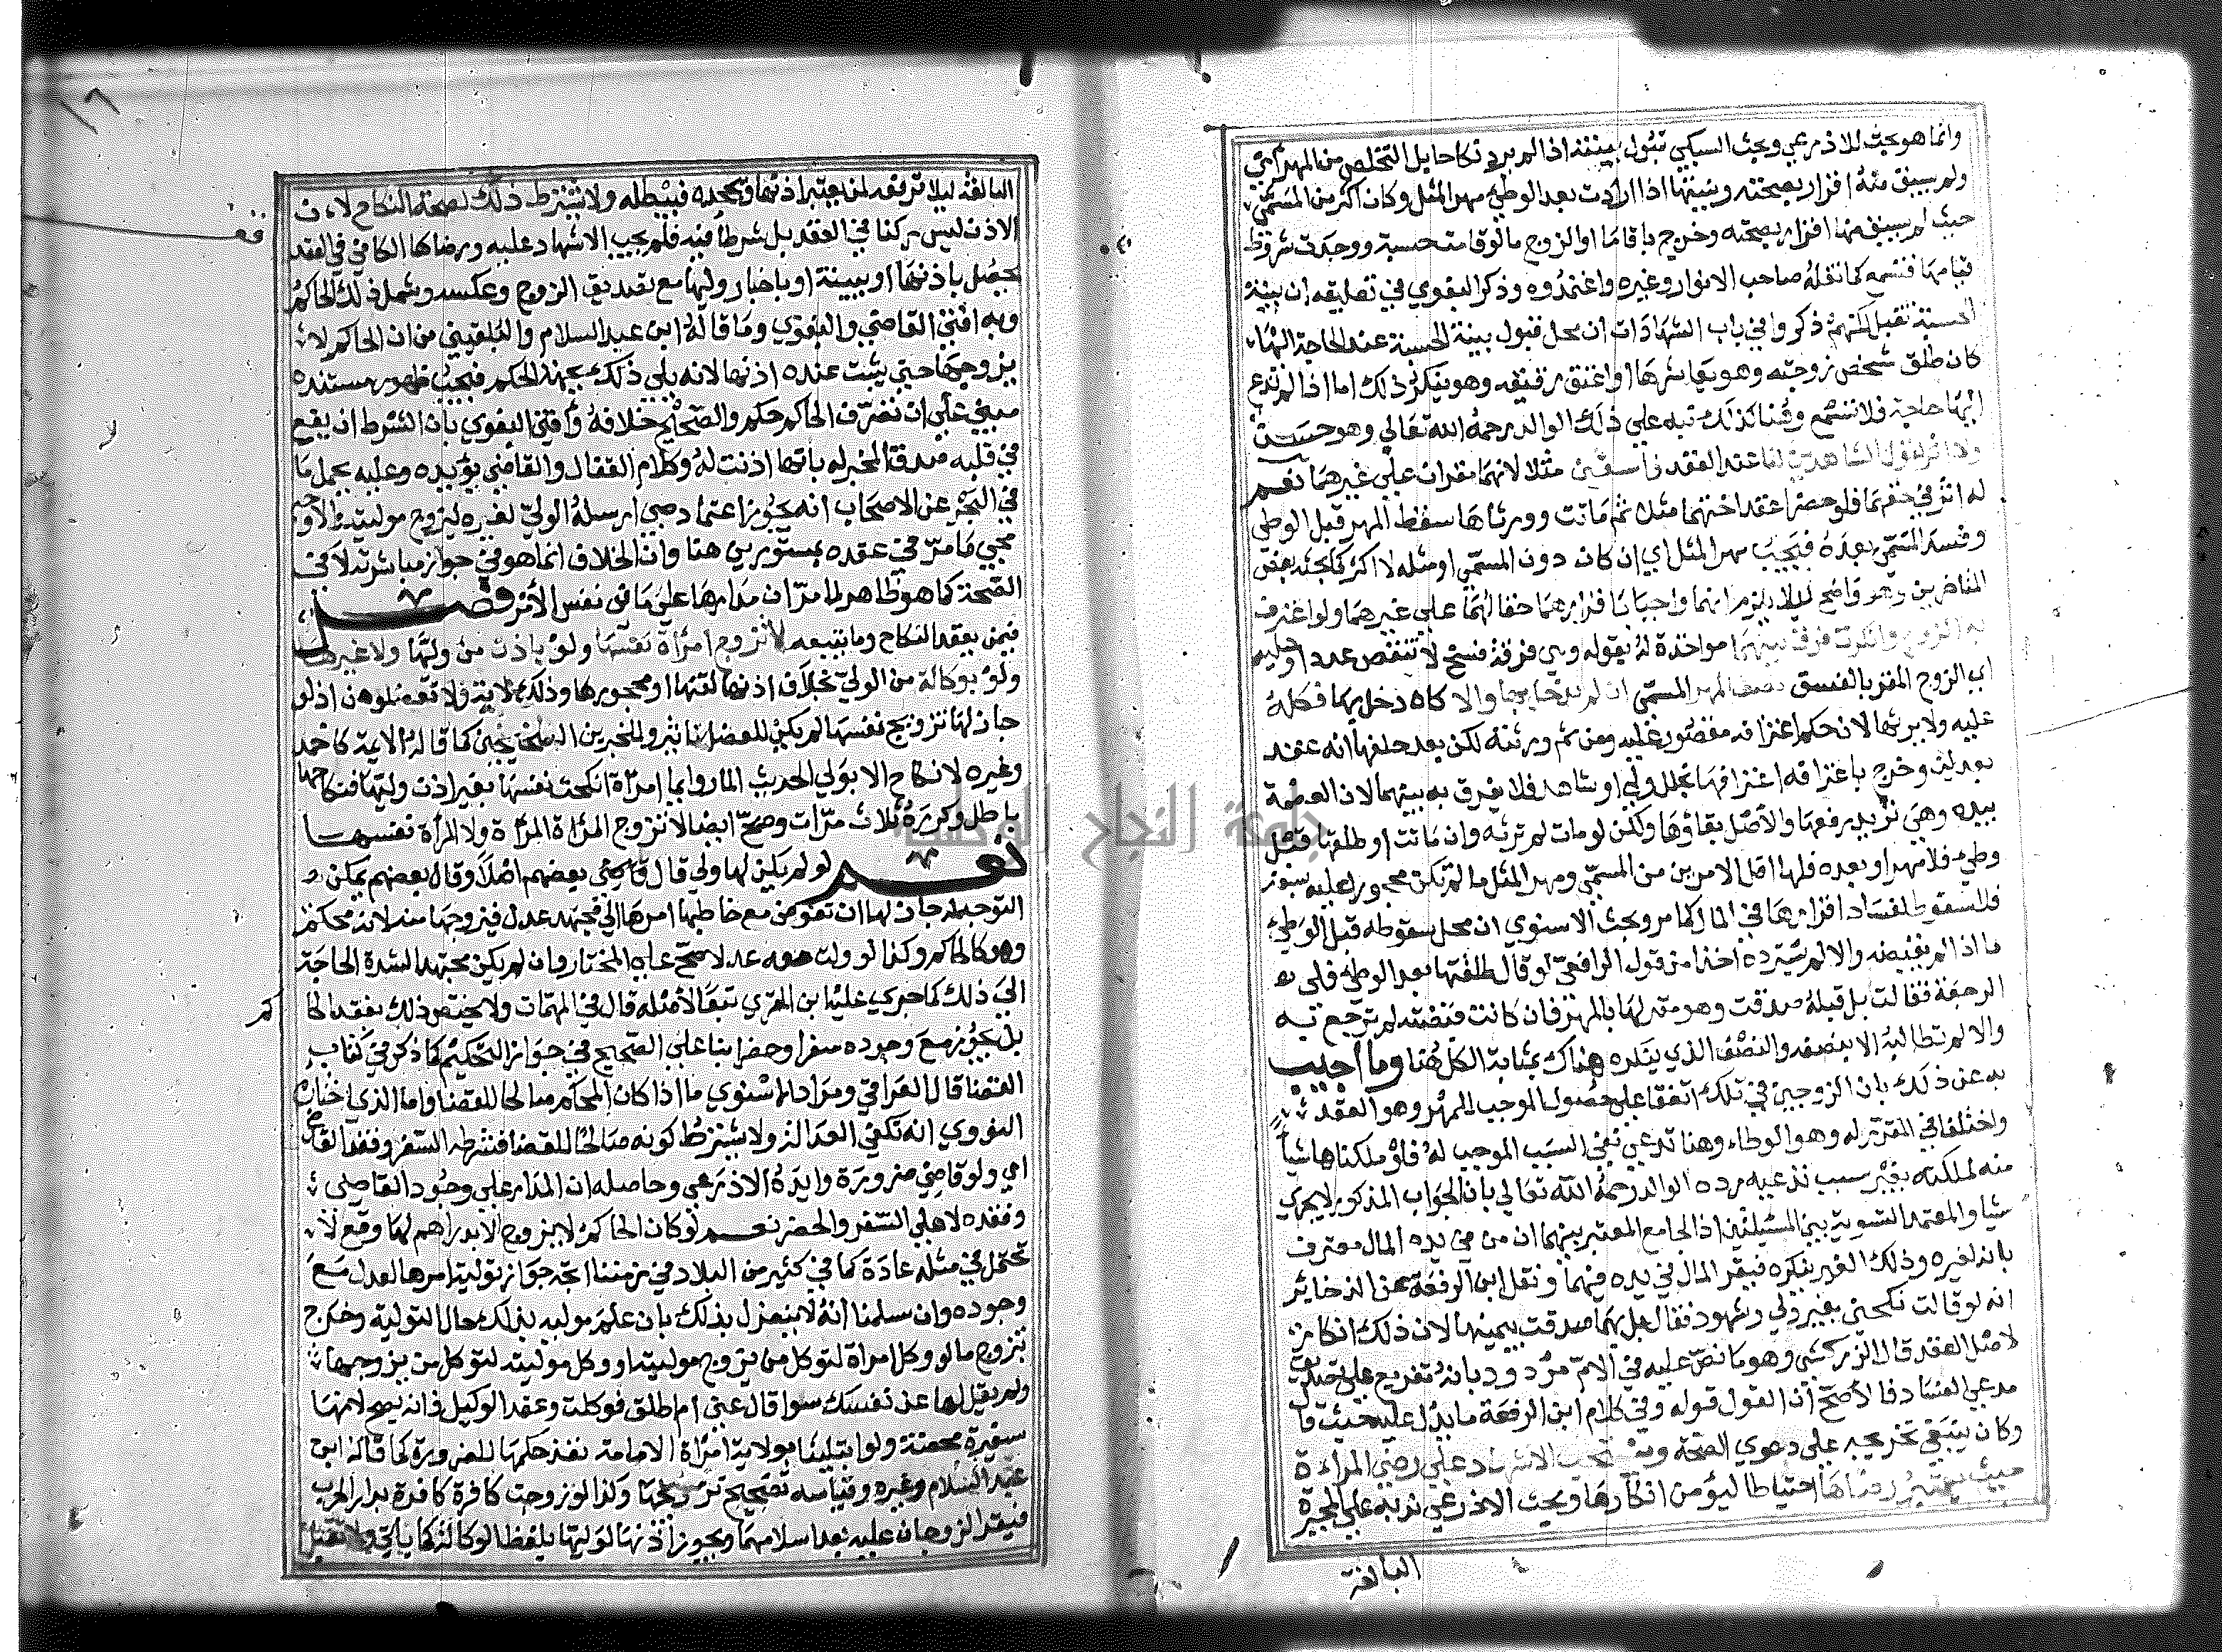 وانما هو بحث للاذرعي وبحث السبكي قبول بينته اذا لم يرد نكاحا بل التخلص من المهر اي
ولم يسبق منه اقرار بصحته وبينتها اذا ارادت بعد الوطئ مهر المثل وكان اكثر من المسمى
حيث لم يسبق منها اقرار بصحته وخرج باقاما او الزوج ما لو قامت حسبة ووجدت شروط
قيامها فتسمع كما نقله صاحب الانوار وغيره واعتمدوه وذكر البغوي في تعليقه ان بينة
الحسبة تقبل لكنهم ذكروا في باب الشهادات ان محل قبول بينة الحسبة عند الحاجة اليها
كان طلق شخص زوجته وهو يعاشرها او اعتق رقيقه وهو ينكر ذلك اما اذا لم تدع
اليها حاجة فلا تسمع وهنا كذلك نبه علي ذلك الوالد رحمه الله تعالي وهو حسن
ولا اثر لقول الشاهدين كنا عند العقد فاسقين مثلا لانهما مقران علي غيرهما نعم
له اثر في حقهما فلو حضرا عقد اختهما مثلا ثم ماتت وورثاها سقط المهر قبل الوطئ
وفسد المسمى بعده فيجب مهر المثل اي ان كان دون المسمى او مثله لا اكثر كما بحثه بعض
المتاخرين وهو واضح لئلا يلزم انهما واجبا باقرارهما حقا لهما علي غيرهما ولو اعترف
به الزوج وانكرت فرق بينهما مواخذة له بقوله وهي فرقة فسخ لا تنقص عددا وعليه
اي الزوج المقر بالفسق نصف المهر المسمى ان لم يدخل بها والا كان دخل بها فكله
عليه ولا يرثها لان حكم اعترافه مقصور عليه ومن ثم ورثته لكن بعد حلفها انه عقد
بعدلين وخرج باعترافه اعترافها بخلل ولي او شاهد فلا يفرق به بينهما لان العصمة
بيده وهي تريد رفعها والاصل بقاؤها ولكن لو مات لم ترثه وان ماتت او طلقها قبل
وطئ فلا مهر او بعده فلها اقل الامرين من المسمى ومهر المثل ما لم تكن محجورا عليها بسفه
فلا سقوط لفساد اقرارها في المال كما مر وبحث الاسنوي ان محل سقوطه قبل الوطئ
ما اذا لم تقبضه والا لم يسترده اخذا من قول الرافعي لو قال طلقتها بعد الوطئ فلي
الرجعة فقالت بل قبله صدقت وهو مقر لها بالمهر فان كانت قبضته لم يرجع به
والا لم تطالبه الا بنصفه والنصف الذي ينكره هناك بمثابة الكل هنا وما اجيب
به عن ذلك بان الزوجين في تلك اتفقا علي حصول الموجب للمهر وهو العقد
واختلفا في المقرر له وهو الوطاء وهنا تدعي نفي السبب الموجب له فلو ملكناها شيأ
منه لملكته بغير سبب تدعيه رده الوالد رحمه الله تعالي بان الجواب المذكور لا يجري
شيا والمعتمد التسوية بين المسئلتين اذ الجامع المعتبر بينهما ان من في يده المال معترف
بانه لغيره وذلك الغير ينكره فيقر المال في يده فيهما ونقل ابن الرفعة عن الذخاير
انه لو قالت نكحتني بغير ولي وشهود فقال بل بهما صدقت بيمينها لان ذلك انكار
لاصل العقد قال الزركشي وهو ما نص عليه في الام مردود بانه تفريع علي تصديق
مدعي الفساد فالاصح ان القول قوله وفي كلام ابن الرفعة ما يدل عليه حيث قا
وكان ينبغي تخريجه علي دعوي الصحة ويستحب الاشهاد علي رضى المراءة
حيث يعتبر رضاها احتياطا ليؤمن انكارها وبحث الاذرعي ندبه علي المجبرة
البالغة
البالغة ليلا ترفعه لمن يعتبر اذنها وتجحده فيبطله ولا يشترط ذلك لصحة النكاح لان
الاذن ليس ركنا في العقد بل شرطا فيه فلم يجب الاشهاد عليه ورضاها الكافي في العقد
يحصل باذنها او ببينة او باخبار وليها مع تصديق الزوج وعكسه وشمل ذلك الحاكم
وبه افتى القاضي والبغوي وما قاله ابن عبد السلام والبلقيني من ان الحاكم لا
يزوجها حتي يثبت عنده اذنها لانه يلي ذلك بجهة الحكم فيجب ظهور مستنده
مبني علي ان تصرف الحاكم حكم والصحيح خلافه وافتي البغوي بان الشرط ان يقع
في قلبه صدق المخبر له بانها اذنت له وكلام القفال والقاضي يؤيده وعليه يحمل ما
في البحر عن الاصحاب انه يجوز اعتماد صبي ارسله الولي لغيره ليزوج موليته والاوجه
مجيي ما مر في عقده بمستورين هنا وان الخلاف انما هو في جواز مباشرته لا في
الصحة كما هو ظاهر لما مر ان مدارها علي ما في نفس الأمر فصل
فيمن يعقد النكاح وما يتبعه لا تزوج امرأة نفسها ولو باذن من وليها ولا غيرها
ولو بوكالة من الولي بخلاف اذنها لقنها او محجورها وذلك لاية فلا تعضلوهن اذ لو
جاز لها تزويج نفسها لم يكن للعضل تاثير وللخبرين الصحيحين كما قاله الايمة كاحمد
وغيره لا نكاح الا بولي الحديث المار وايما امراة انكحت نفسها بغير اذن وليها فنكاحها
باطل وكرره ثلاث مرات وصح ايضا لا تزوج المراة المرأة ولا المرأة نفسها
نعم لو لم يكن لها ولي قال بعضهم اصلا وقال بعضهم يمكن
التوجه له جاز لها ان تفوض مع خاطبها امرها الي مجتهد عدل فيزوجها منه لانه محكم
وهو كالحاكم وكذا لو ولت معه عدلا صح علي المختار وان لم يكن مجتهدا لشدة الحاجة
الي ذلك كما جري عليه ابن المقري تبعا لاصله قال في المهمات ولا يختص ذلك بفقد الحا
كم
بل يجوز مع وجوده سفرا وحضرا بنا علي الصحيح في جواز التحكيم كما ذكر في كتاب
القضا قال العراقي ومراد الاسنوي ما اذا كان المحكم صالحا للقضا واما الذي اختاره
النووي انه تكفي العدالة ولا يشترط كونه صالحا للقضا فشرطه السفر وفقد القاضي
اي ولو قاضي ضرورة وايده الاذرعي وحاصله ان المدار علي وجود القاضي
وفقده لا علي السفر والحضر نعم لو كان الحاكم لا يزوج الا بدراهم لها وقع لا
تحتمل في مثله عادة كما في كثير من البلاد في زمننا اتجه جواز تولية امرها العدل مع
وجوده وان سلمنا انه لا ينعزل بذلك بان علم موليه بذلك حال التولية وخرج
بتزوج ما لو وكل امراة لتوكل من يزوج موليته او وكل موليته لتوكل من يزوجها
ولم يقل لها عن نفسك سوا قال عني ام اطلق فوكلت وعقد الوكيل فانه يصح لانها
سفيرة محضة ولو ابتلينا بولاية امرأة الامامة نفذ حكمها للضرورة كما قاله ابن
عبد السلام وغيره وقياسه تصحيح تزويجها وكذا لو زوجت كافرة كافرة بدار الحرب
فيقر الزوجان عليه بعد اسلامهما ويجوز اذنها لوليها بلفظ الوكالة كما ياتي ولا تقبل